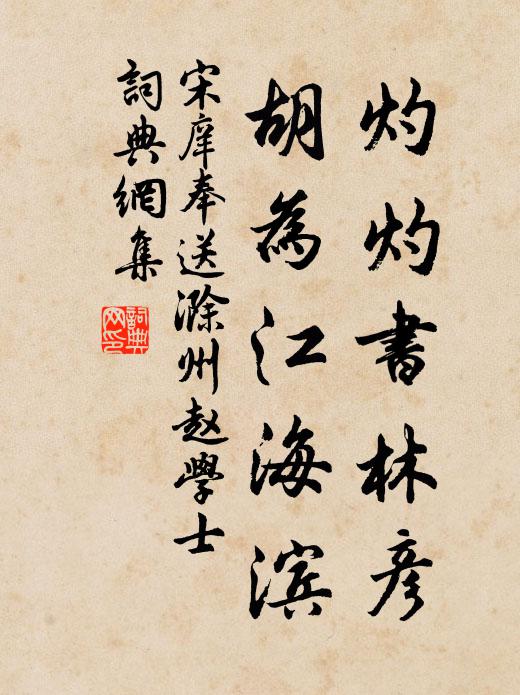 灼灼書林彦
胡為江海滨
宋庠奉送滁州赵學士
詞典網集
詞典网印